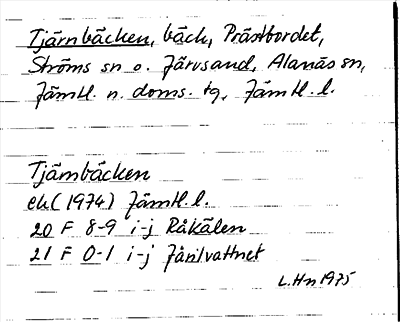 Tjärnbäcken, bäck, Prästbordet,
Ströms sn o. Järvsand, Alanäs sn,
Jämtl. n. doms. tg, Jämtl. l.
Tjärnbäcken
ek (1974) Jämtl. l.
20 F 8-9 i-j Råkälen
21 F 0-1 i-j Jånlvattnet
L.Hn 1975